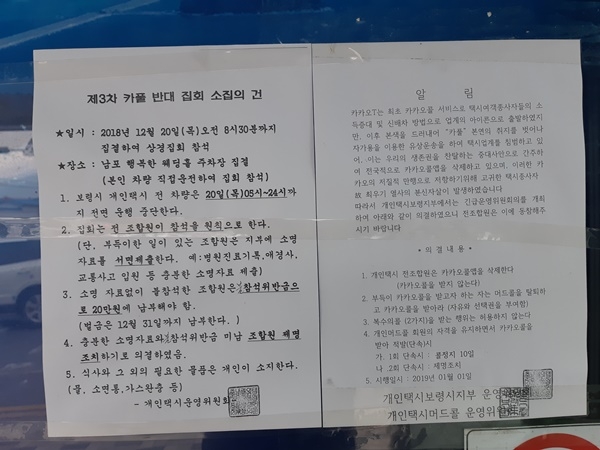 제3차 카풀 반대 집회 소집의 건
★일시 : 2018년 12월 20일(목)오전 8시30분까지
집결하여 상경집회 참석
★장소 : 남포 행복한 웨딩홀 주차장 집결
(본인 차량 직접운전하여 집회 참석)
1. 보령시 개인택시 전 차량은 20일(목)05시~24시까
지 전면 운행 중단한다.
2. 집회는 전 조합원이 참석을 원칙으로 한다.
(단, 부득이한 일이 있는 조합원은 지부에 소명
자료를 서면제출한다. 예:병원진료기록,애경사,
교통사고 입원 등 충분한 소명자료 제출)
3. 소명 자료없이 불참석한 조합원은 참석위반금으
로 20만원에 납부해야 함.
(벌금은 12월 31일까지 납부한다. )
4. 충분한 소명자료와 참석위반금 미납 조합원 제명
조치하기로 의결하였음.
5. 식사와 그 외의 필요한 물품은 개인이 소지한다.
(물, 소면통,가스완충 등)
- 개인택시운영위원회
알 림
카카오T는 최초 카카오콜 서비스로 택시여객종사자들의 소
득증대 및 신배차 방법으로 업계의 아이콘으로 출발하였지
만, 이후 본색을 드러내어 "카풀" 본연의 취지를 벗어나
자가용을 이용한 유상운송을 하여 택시업계를 침범하고 있
어, 이는 우리의 생존권을 찬탈하는 중대사안으로 간주하
여 전국적으로 카카오앱을 삭제하고 있으며, 이러한 카
카오의 저질적 만행으로 저항하기위해 고귀한 택시종사자
故 최우기 열사의 분신자살이 발생하였습니다
따라서 개인택시보령시지부에서는 긴급운영위원회의를 개최
하여 아래와 같이 의결하였으니 전조합원은 이에 동참해주
시기 바랍니다
* 의 결 내 용 *
1. 개인택시 전조합원은 카카오콜앱을 삭제한다
(카카오콜을 받지 않는다)
2. 부득이 카카오콜을 받고자 하는 자는 머드콜을 탈퇴하
고 카카오콜을 받아라 (자유와 선택권을 부여함)
3. 복수의콜 (2가지)을 받는 행위는 허용하지 않는다
4. 개인머드콜 회원의 자격을 유지하면서 카카오콜을
받아 적발(단속)시
가. 1회 단속시 : 콜정지 10일
나. 2회 단속시 : 제명조치
5. 시행일시 : 2019년 01월 01일
개인택시보령시지부 운영위원회
개인택시머드콜 운영위원회